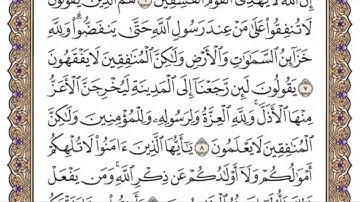 إِنَّ ٱللَّهَ لَا يَهْدِى ٱلْقَوْمَ ٱلْفَٰسِقِينَ ٦ هُمُ ٱلَّذِينَ يَقُولُونَ
لَا تُنفِقُوا۟ عَلَىٰ مَنْ عِندَ رَسُولِ ٱللَّهِ حَتَّىٰ يَنفَضُّوا۟ ۗ وَلِلَّهِ
خَزَآئِنُ ٱلسَّمَٰوَٰتِ وَٱلْأَرْضِ وَلَٰكِنَّ ٱلْمُنَٰفِقِينَ لَا يَفْقَهُونَ
٧ يَقُولُونَ لَئِن رَّجَعْنَآ إِلَى ٱلْمَدِينَةِ لَيُخْرِجَنَّ ٱلْأَعَزُّ
مِنْهَا ٱلْأَذَلَّ ۚ وَلِلَّهِ ٱلْعِزَّةُ وَلِرَسُولِهِۦ وَلِلْمُؤْمِنِينَ وَلَٰكِنَّ
ٱلْمُنَٰفِقِينَ لَا يَعْلَمُونَ ٨ يَٰٓأَيُّهَا ٱلَّذِينَ ءَامَنُوا۟ لَا تُلْهِكُمْ
أَمْوَٰلُكُمْ وَلَآ أَوْلَٰدُكُمْ عَن ذِكْرِ ٱللَّهِ ۚ وَمَن يَفْعَلْ